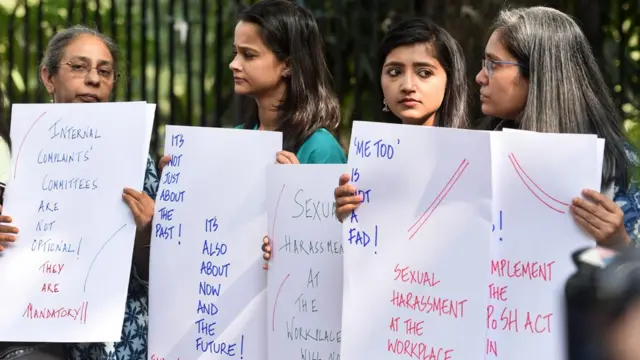 INTERNAL
COMPLAINTS'
COMMITTEES
ARE
NOT
OPTIONAL!
THEY
ARE
MANDATORY!!
IT'S
NOT
JUST
ABOUT
THE
PAST!
ITS
ALSO
ABOUT
NOW
AND
THE
FUTURE!
SEXUA
HARASSMENT
AT
THE
WORKPLACE
'ME TOO'
IS
A
FAD!
SEXUAL
HARASSMENT
AT THE
WORKPLACE
!
MPLEMENT
THE
PoSH ACT
IN